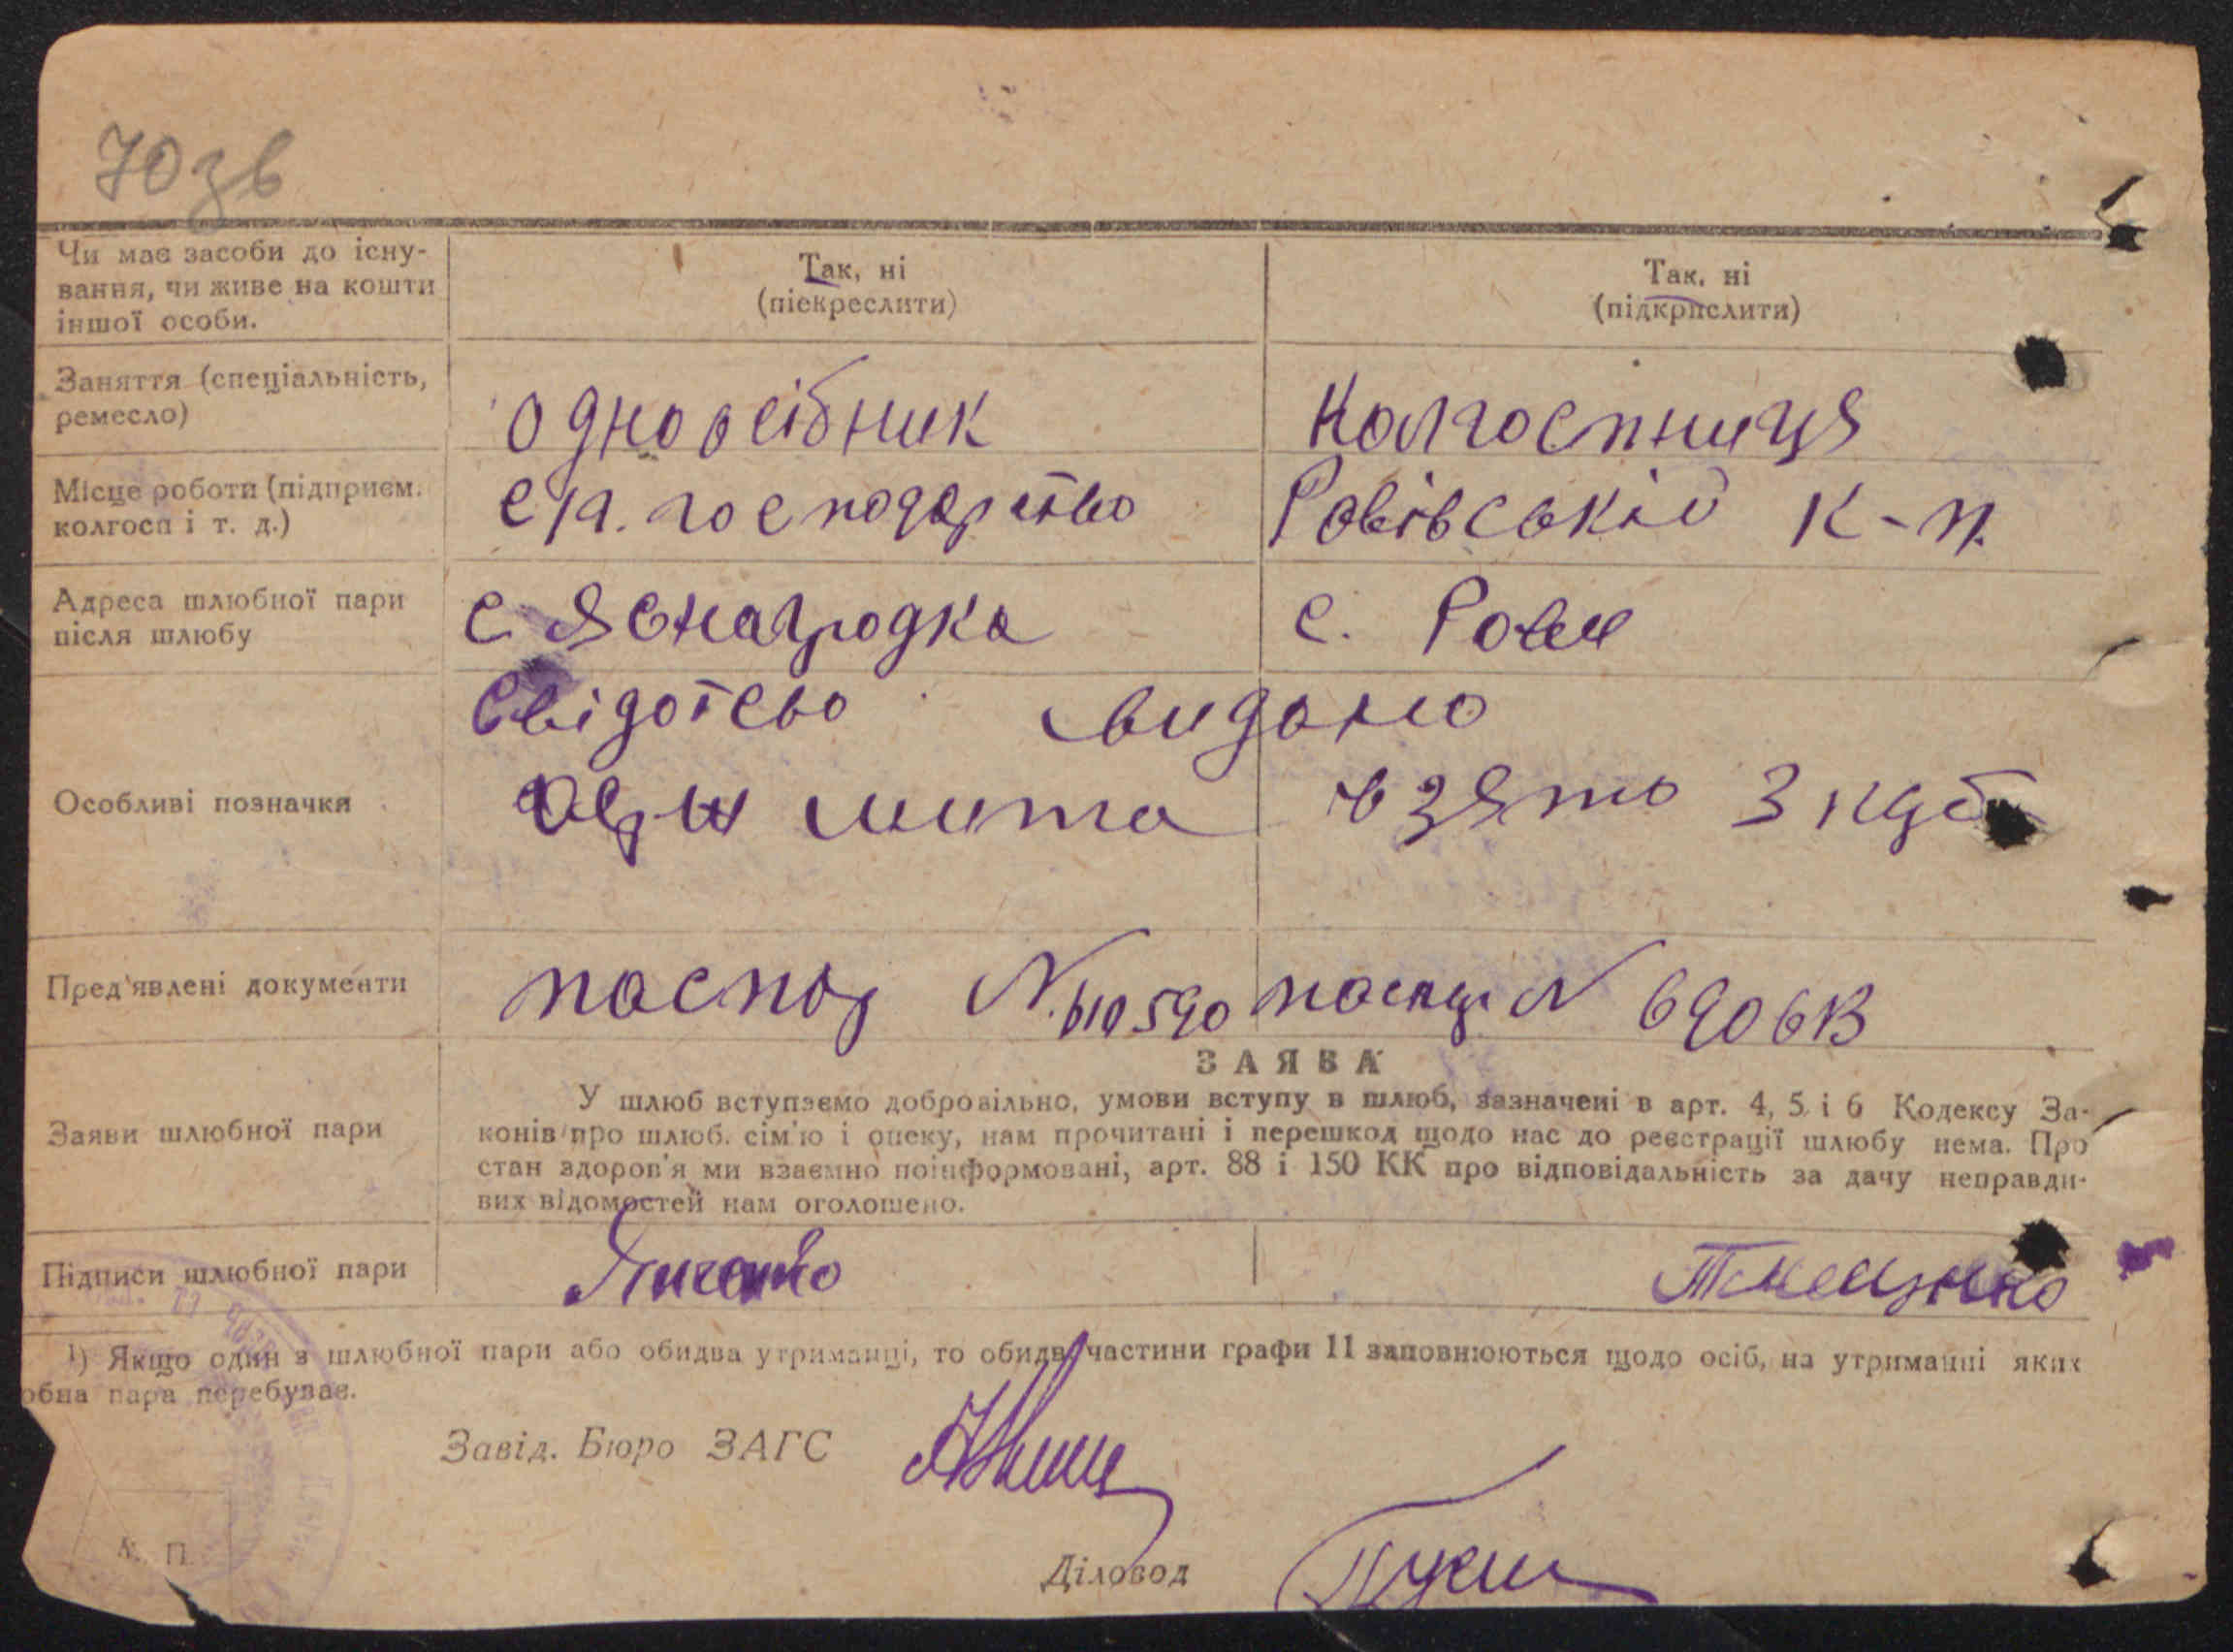 70 зв
Чи має засоби до існу-
вання, чи живе на кошти
іншої особи.
Так, ні
(піекреслити)
Так, ні
(підкрислити)
Заняття (спеціальність,
ремесло)
одноосібник
колгоспниця
Місце роботи (підприєм.
колгосп і т. д.)
с/г. господарство
Ровівській к-п.
Адреса шлюбної пари
після шлюбу
с. Ясногродка
с. Рови
Особливі позначки
Свідотсво видано
мита взято 3 крб
Пред'явлені документи
паспор N. 610590
паспор N 6906В
Заяви шлюбної пари
ЗАЯВА
У шлюб вступаємо добровільно, умови вступу в шлюб, зазначені в арт. 4, 5 і 6 Кодексу За-
конів про шлюб, сім'ю і опеку, нам прочитані і перешкод щодо нас до реєстрації шлюбу нема. Про
стан здоров'я ми взаємно поінформовані, арт. 88 і 150 КК про відповідальність за дачу неправди-
вих відомостей нам оголошено.
Підписи шлюбної пари
1) Якщо один з шлюбної пари або обидва утриманці, то обидві частини графи 11 заповнюються щодо осіб, на утриманні яких
обна пара перебуває.
Завід. Бюро ЗАГС
М. П.
Діловод